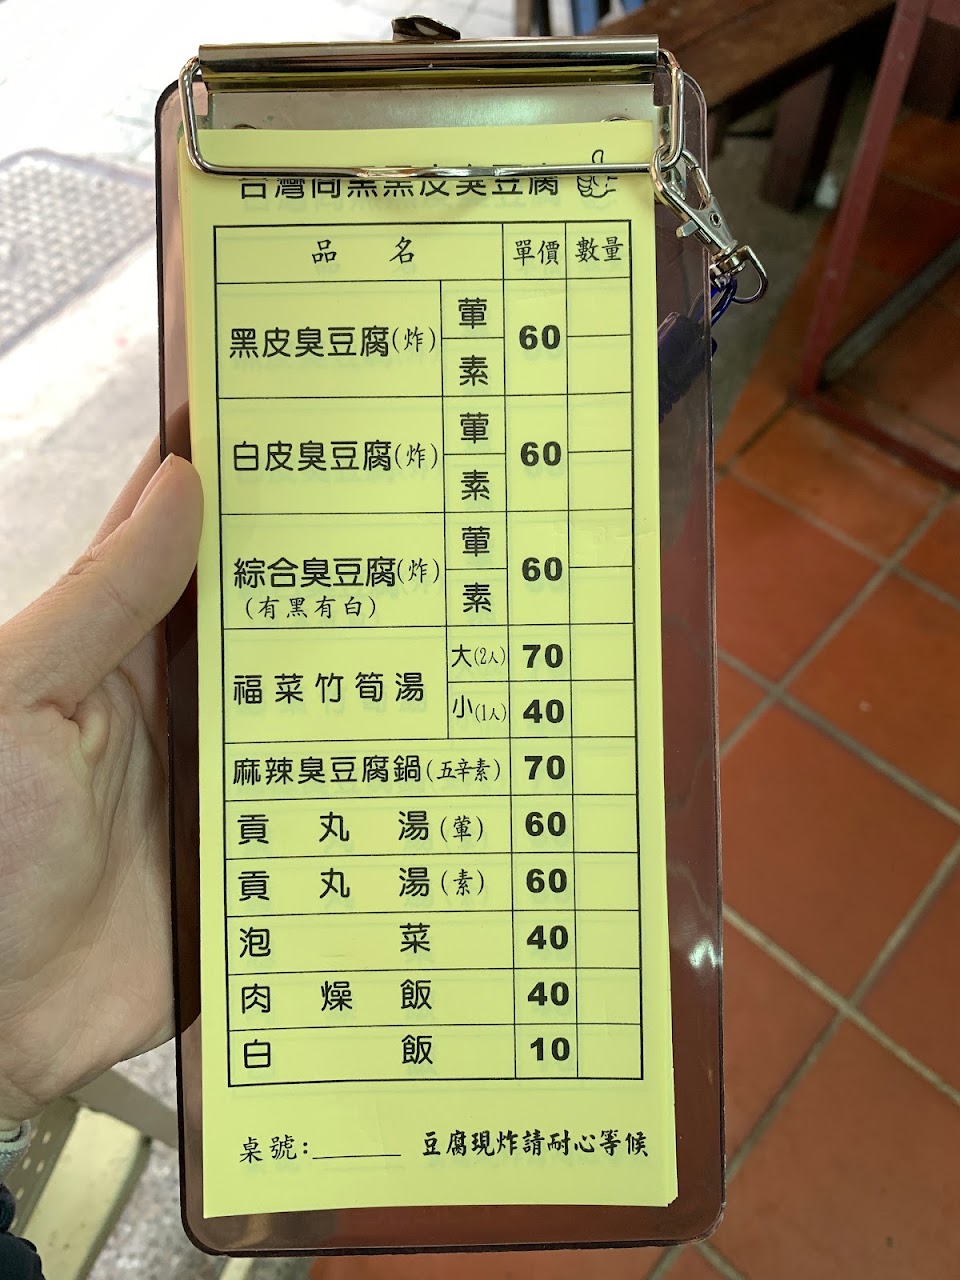 台灣尚黑黑皮臭豆腐
品名 單價 數量
黑皮臭豆腐(炸) 葷 60
素
白皮臭豆腐(炸) 葷 60
素
綜合臭豆腐(炸) 葷 60
(有黑有白) 素
福菜竹筍湯 大(2人) 70
小(1人) 40
麻辣臭豆腐鍋(五辛素) 70
貢丸湯(葷) 60
貢丸湯(素) 60
泡菜 40
肉燥飯 40
白飯 10
桌號:______ 豆腐現炸請耐心等候